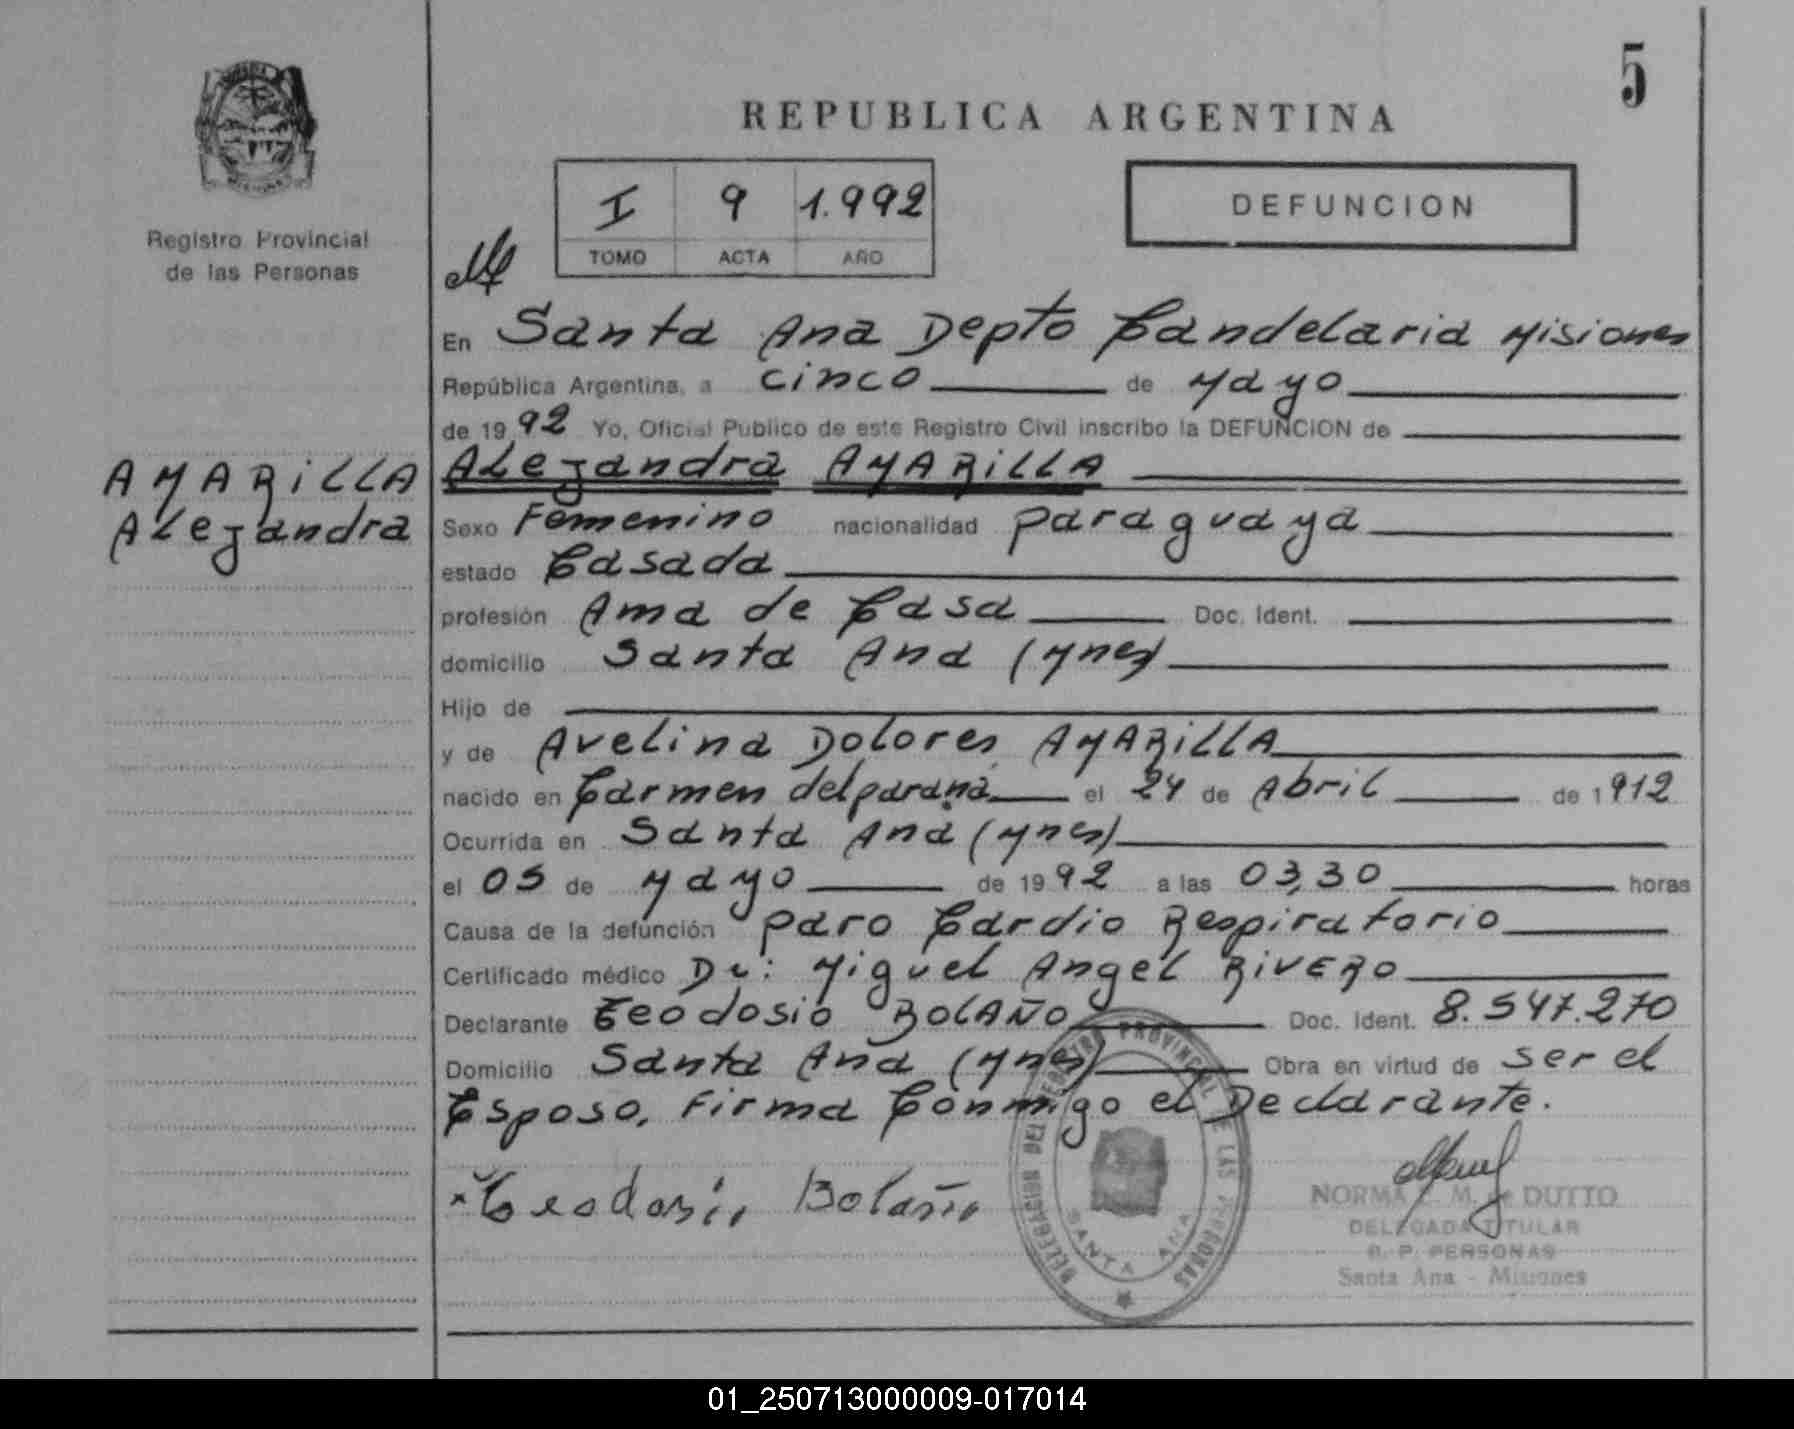 5
REPUBLICA ARGENTINA
I 9 1.992
TOMO ACTA AÑO
DEFUNCION
Registro Provincial
de las Personas
En Santa Ana Depto Candelaria Misiones
República Argentina, a cinco de Mayo
de 1992 Yo, Oficial Publico de este Registro Civil inscribo la DEFUNCION de
AMARILLA
Alejandra
Alejandra AMARILLA
Sexo Femenino nacionalidad paraguaya
estado Casada
profesión Ama de Casa Doc. Ident.
domicilio Santa Ana (Mnes)
Hijo de
y de Avelina Dolores AMARILLA
nacido en Carmen del paraná el 24 de Abril de 1912
Ocurrida en Santa Ana (Mnes)
el 05 de Mayo de 1992 a las 03,30 horas
Causa de la defunción paro Cardio Respiratorio
Certificado médico Dr: Miguel Angel RIVERO
Declarante Teodosio BOLAÑO Doc. Ident. 8.547.270
Domicilio Santa Ana (Mnes) Obra en virtud de ser el
Esposo, Firma Conmigo el Declarante.
Teodosio Bolaño
DELEGACION DEL REGISTRO PROVINCIAL DE LAS PERSONAS
SANTA ANA
NORMA M. de DUTTO
DELEGADA TITULAR
R. P. PERSONAS
Santa Ana - Misiones
01_250713000009-017014